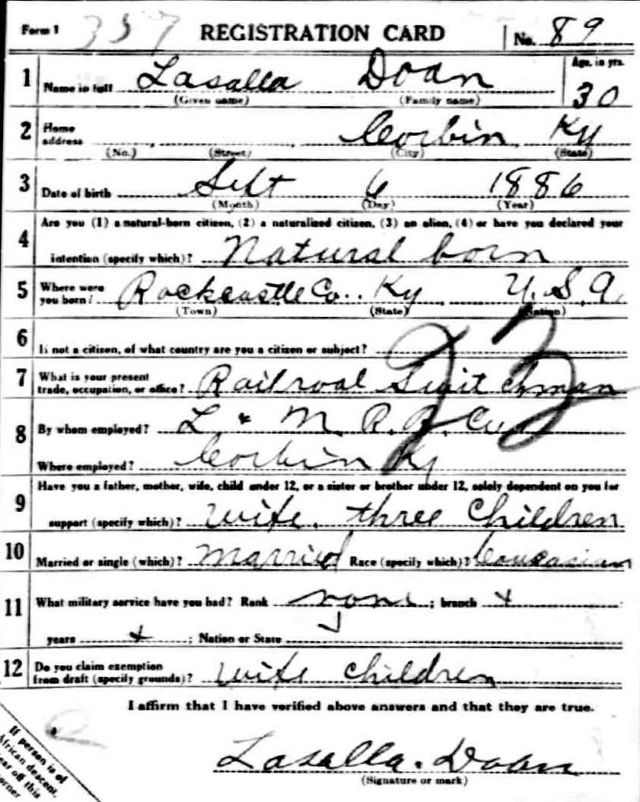 Form 1 357 REGISTRATION CARD No. 89
1 Name in full Lasalla Doan Age, in yrs. 30
(Given name) (Family name)
2 Home address Corbin Ky
(No.) (Street) (City) (State)
3 Date of birth Sept 6 1886
(Month) (Day) (Year)
4 Are you (1) a natural-born citizen, (2) a naturalized citizen, (3) an alien, (4) or have you declared your
intention (specify which)? Natural born
5 Where were you born? Rockcastle Co. Ky U.S.A
(Town) (State) (Nation)
6 If not a citizen, of what country are you a citizen or subject?
7 What is your present trade, occupation, or office? Railroad
8 By whom employed? L & R. R. Co
Where employed? Corbin Ky
9 Have you a father, mother, wife, child under 12, or a sister or brother under 12, solely dependent on you for
support (specify which)? Wife, three Children
10 Married or single (which)? Married Race (specify which)? Caucasian
11 What military service have you had? Rank none ; branch x
years x ; Nation or State
12 Do you claim exemption from draft (specify grounds)? Wife Children
I affirm that I have verified above answers and that they are true.
Lasalla. Doan
(Signature or mark)
If person is of
African descent,
tear off this
corner